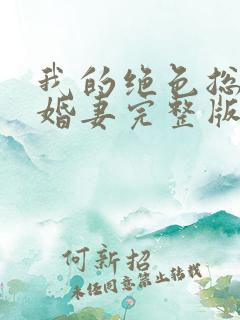 我的绝色总
婚妻完整版
何新招
未经同意禁止转载